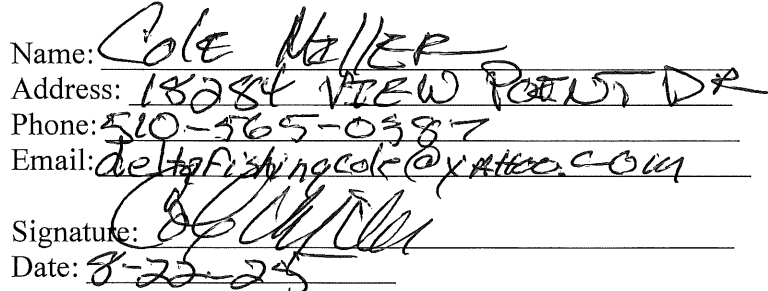 Name: Cole Miller
Address: 18284 VIEW POINT DR
Phone: 510-565-0387
Email: deltafishingcole@yahoo.com
Signature: Cole Miller
Date: 8-22-25